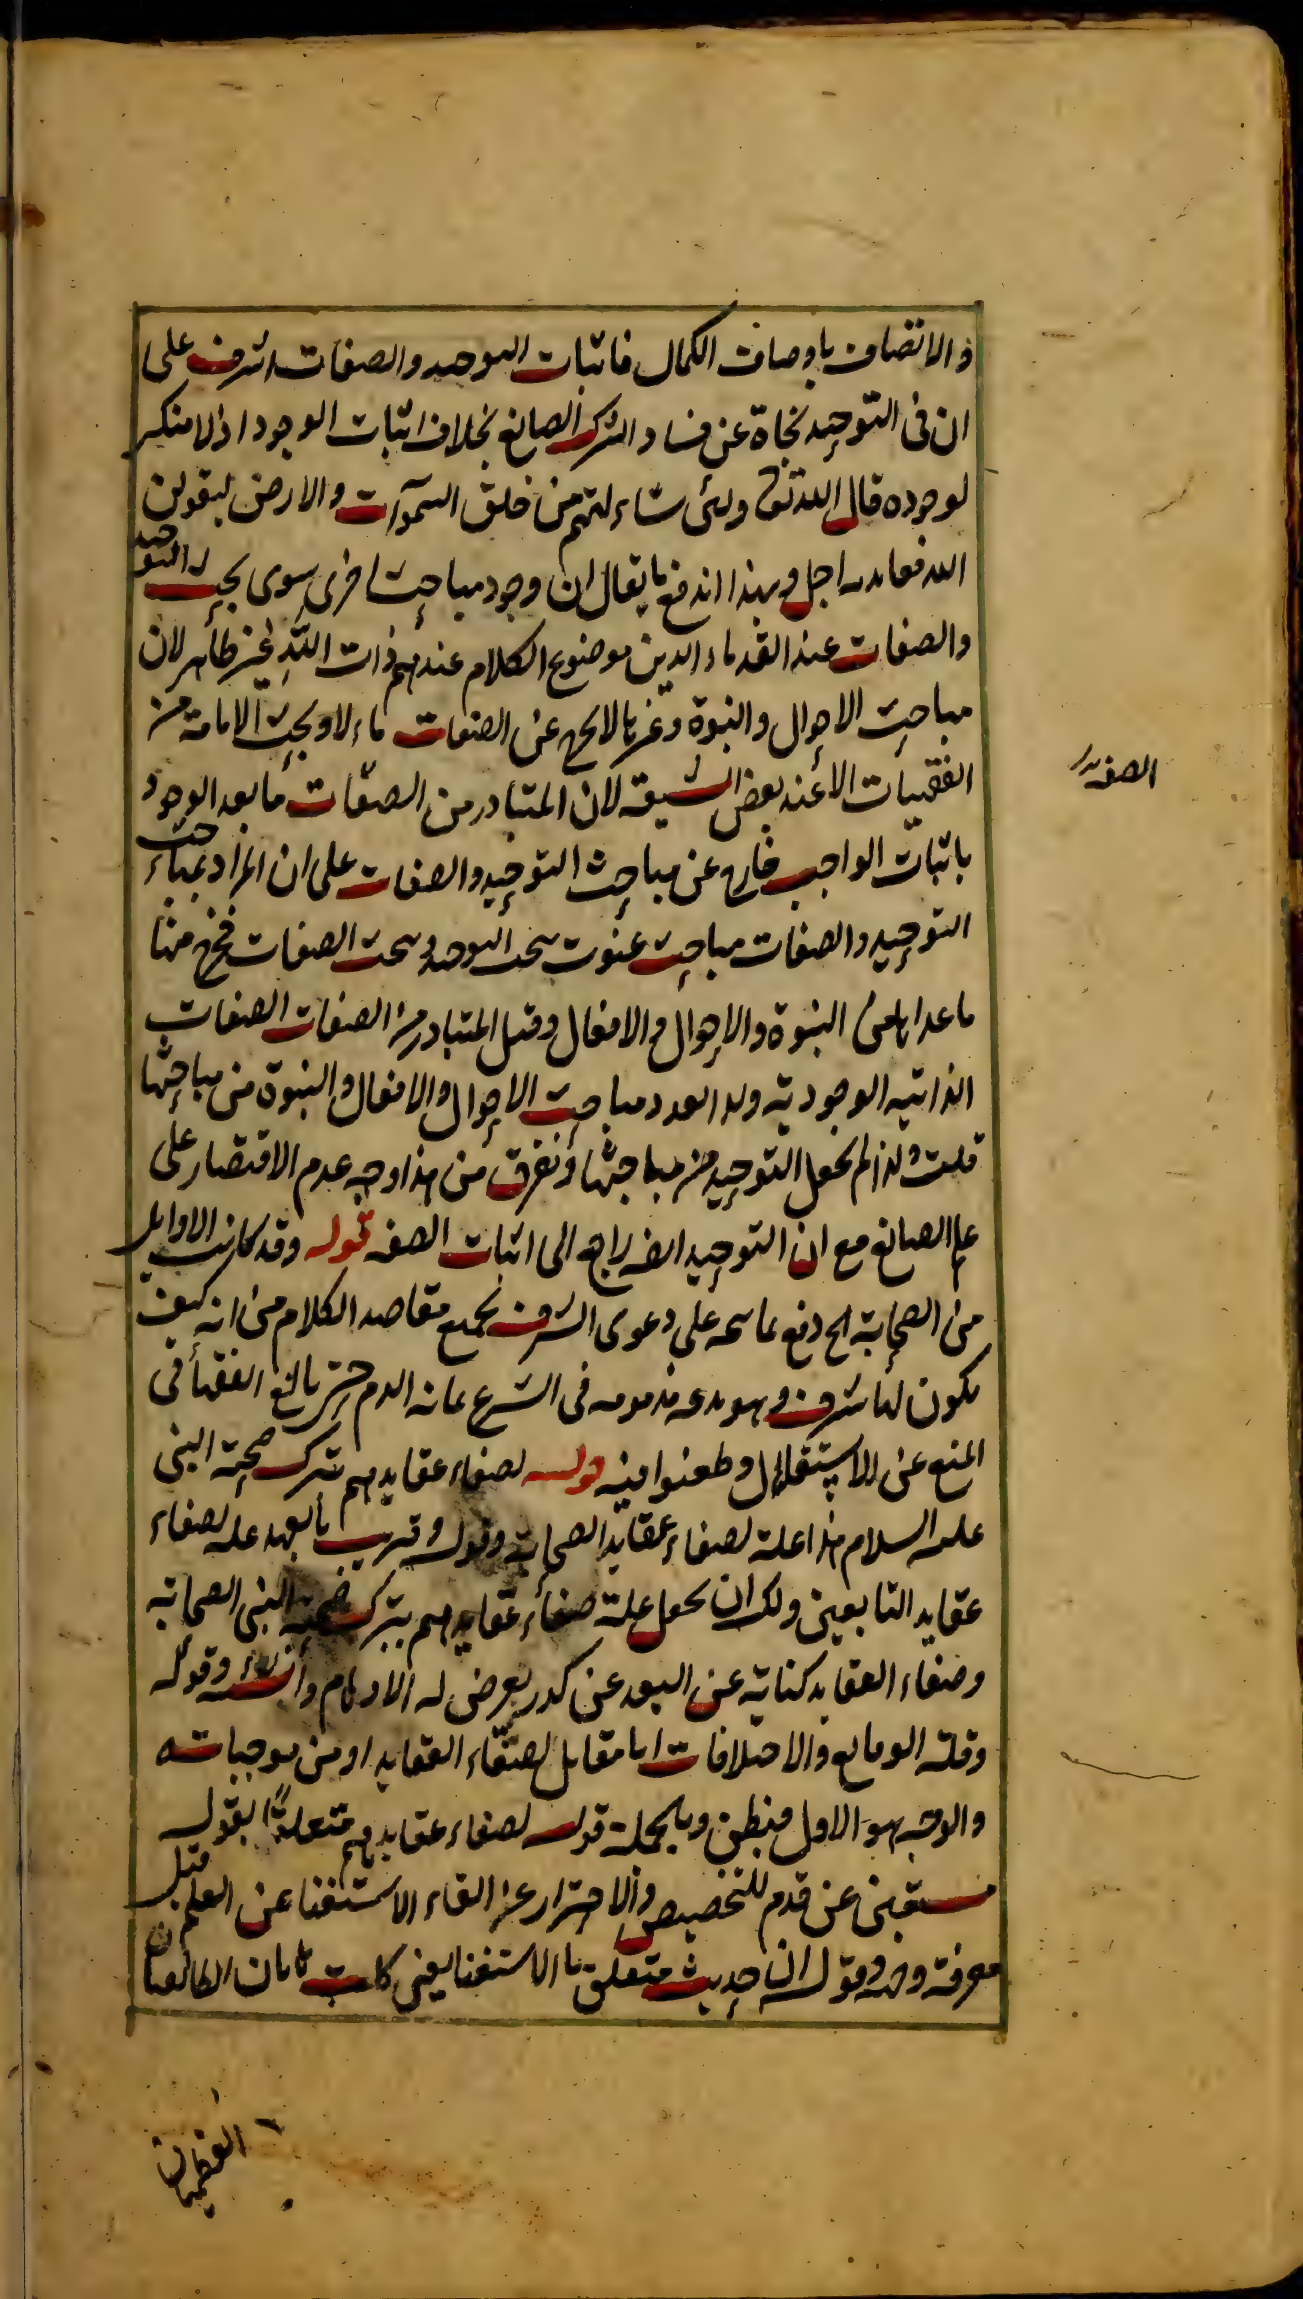 والاتصاف باوصاف الكمال فاثبات التوحيد والصفات اشرف على
ان فى التوحيد نجاة عن فساد الشرك الصانع بخلاف اثبات الوجود اذ لا منكر
لوجوده قال الله تعالى ولئن سئلتهم من خلق السموآت والارض ليقولن
الله اجل وبهذا اندفع ما يقال ان وجود مباحث اخرى سوى بحث التوحيد
والصفات عند القدماء الذين موضوع الكلام عندهم ذات الله غير ظاهر لان
مباحث الاحوال والنبوة وغيرها لا تخرج عن الصفات ماءلا وبحث الامامة من
الفقهيات الا عند بعض الشيعة لان المتبادر من الصفات ما بعد الوجود
باثبات الواجب خارج عن مباحث التوحيد والصفات على ان المراد بمباحث
التوحيد والصفات مباحث عنونت ببحث التوحيد وبحث الصفات فخرج منها
ما عداها من النبوة والاحوال والافعال وقيل المتبادر من الصفات الصفات
الذاتية الوجودية ولذا لم يعد مباحث الاحوال والافعال والنبوة من مباحثها
قلت ولذا لم يجعل التوحيد من مباحثها وتفرق من هذا وجه عدم الاقتصار على
علم الصانع مع ان التوحيد ايضا راجع الى اثبات الصفة قوله وقد كانت الاوايل
من الصحابة الخ دفع لما يتجه على دعوى الشرف بجميع مقاصد الكلام من انه كيف
يكون لها شرف وهو بدعة مذمومة فى الشرع غاية الذم حتى بالغ الفقهأ فى
المنع عن الاستقلال وطعنوا فيه قوله لصفاء عقايدهم ببركة صحبة النبى
عليه السلام هذا علة لصفاء عقايد الصحابة وقوله وقرب بالعهد علة لصفاء
عقايد التابعين ولك ان تجعل علة صفأء عقايدهم ببركة صحبة النبى الصحابة
وصفاء العقايد كناية عن البعد عن كدر يعرض له الاوهام وقوله
وقلة الوقايع والاختلافات اما مقابل لصفاء العقايد او من موجباته
والوجه هو الاول فتفطن وبالجملة قوله لصفاء عقايدهم متعلق بقوله
مستغنين عن قدم للتخصيص والاحتراز عن القاء الاستغنا عن العلم قبل
معرفة وجهه وقوله ان حديث متعلق بالاستغنا يعنى كانت
الصفة
القطعيان